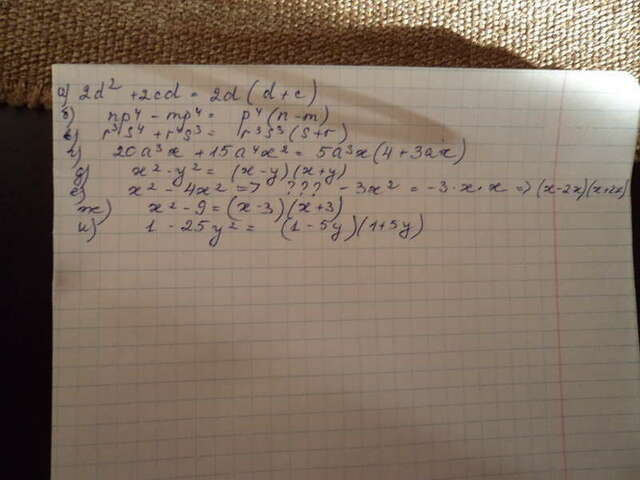 а) 2d² + 2cd = 2d (d + c)
б) np⁴ - mp⁴ = p⁴ (n - m)
в) r³s⁴ + r⁴s³ = r³s³ (s + r)
г) 20a³x + 15a⁴x² = 5a³x (4 + 3ax)
д) x² - y² = (x - y)(x + y)
е) x² - 4x² = ? ??? - 3x² = -3·x·x => (x - 2x)(x + 2x)
ж) x² - 9 = (x - 3)(x + 3)
и) 1 - 25y² = (1 - 5y)(1 + 5y)